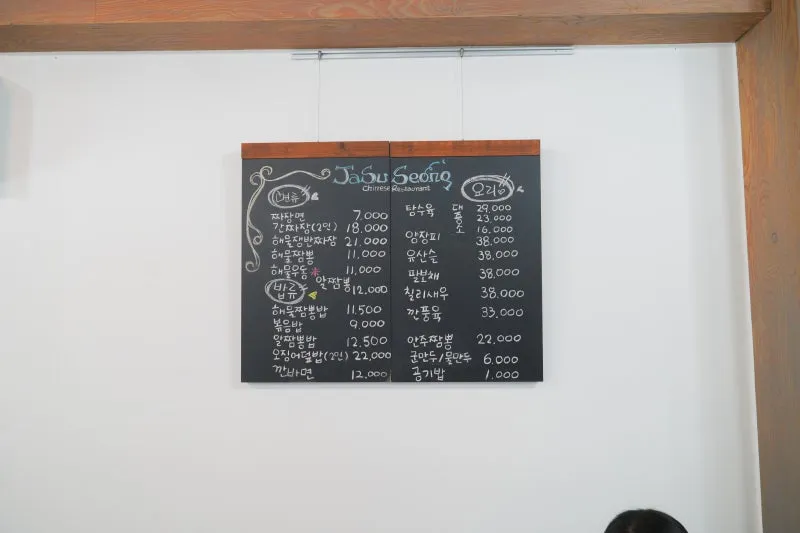 JaSu Seong
Chinese Restaurant
면류
짜장면 7.000
간짜장(2인) 18.000
해물쟁반짜장 21.000
해물짬뽕 11.000
해물우동 11.000
알짬뽕 12.000
밥류
해물짬뽕밥 11.500
볶음밥 9.000
알짬뽕밥 12.500
오징어덮밥(2인) 22,000
깐바면 12.000
요리
탕수육 대 29,000
중 23,000
소 16.000
양장피 38.000
유산슬 38,000
팔보채 38,000
칠리새우 38,000
깐풍육 33,000
안주짬뽕 22,000
군만두/물만두 6.000
공기밥 1.000